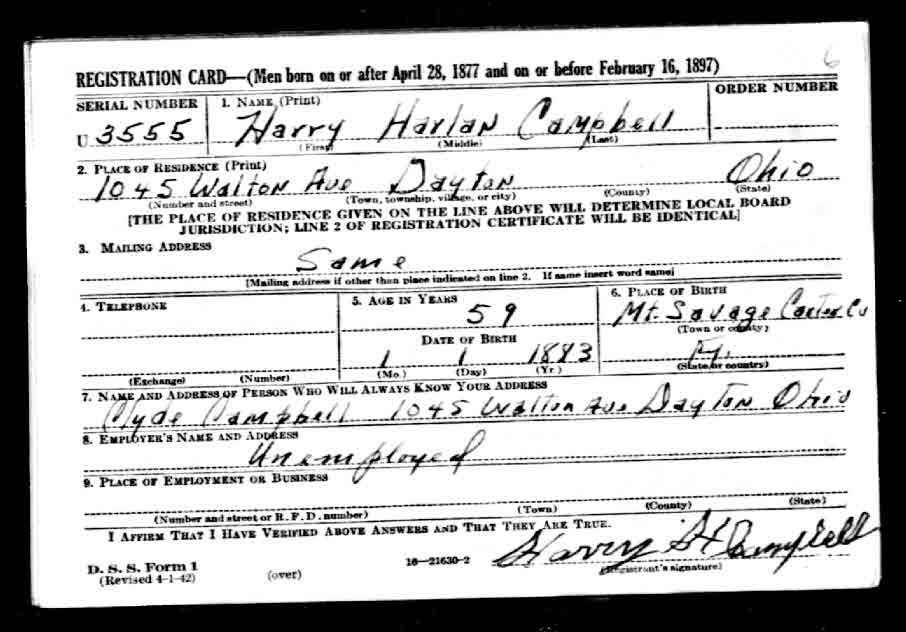 6
REGISTRATION CARD—(Men born on or after April 28, 1877 and on or before February 16, 1897)
SERIAL NUMBER 1. NAME (Print) ORDER NUMBER
U 3555 Harry Harlan Campbell
(First) (Middle) (Last)
2. PLACE OF RESIDENCE (Print)
1045 Walton Ave Dayton Ohio
(Number and street) (Town, township, village, or city) (County) (State)
[THE PLACE OF RESIDENCE GIVEN ON THE LINE ABOVE WILL DETERMINE LOCAL BOARD
JURISDICTION; LINE 2 OF REGISTRATION CERTIFICATE WILL BE IDENTICAL]
3. MAILING ADDRESS
Same
[Mailing address if other than place indicated on line 2. If same insert word same]
4. TELEPHONE 5. AGE IN YEARS 6. PLACE OF BIRTH
59 Mt. Savage Carter Co
(Town or county)
DATE OF BIRTH
1 1 1883 Ky.
(Exchange) (Number) (Mo.) (Day) (Yr.) (State or country)
7. NAME AND ADDRESS OF PERSON WHO WILL ALWAYS KNOW YOUR ADDRESS
Clyde Campbell 1045 Walton Ave Dayton Ohio
8. EMPLOYER'S NAME AND ADDRESS
Unemployed
9. PLACE OF EMPLOYMENT OR BUSINESS
(Number and street or R. F. D. number) (Town) (County) (State)
I AFFIRM THAT I HAVE VERIFIED ABOVE ANSWERS AND THAT THEY ARE TRUE.
D. S. S. Form 1 16—21630-2 Harry H Campbell
(Revised 4-1-42) (over) (Registrant's signature)